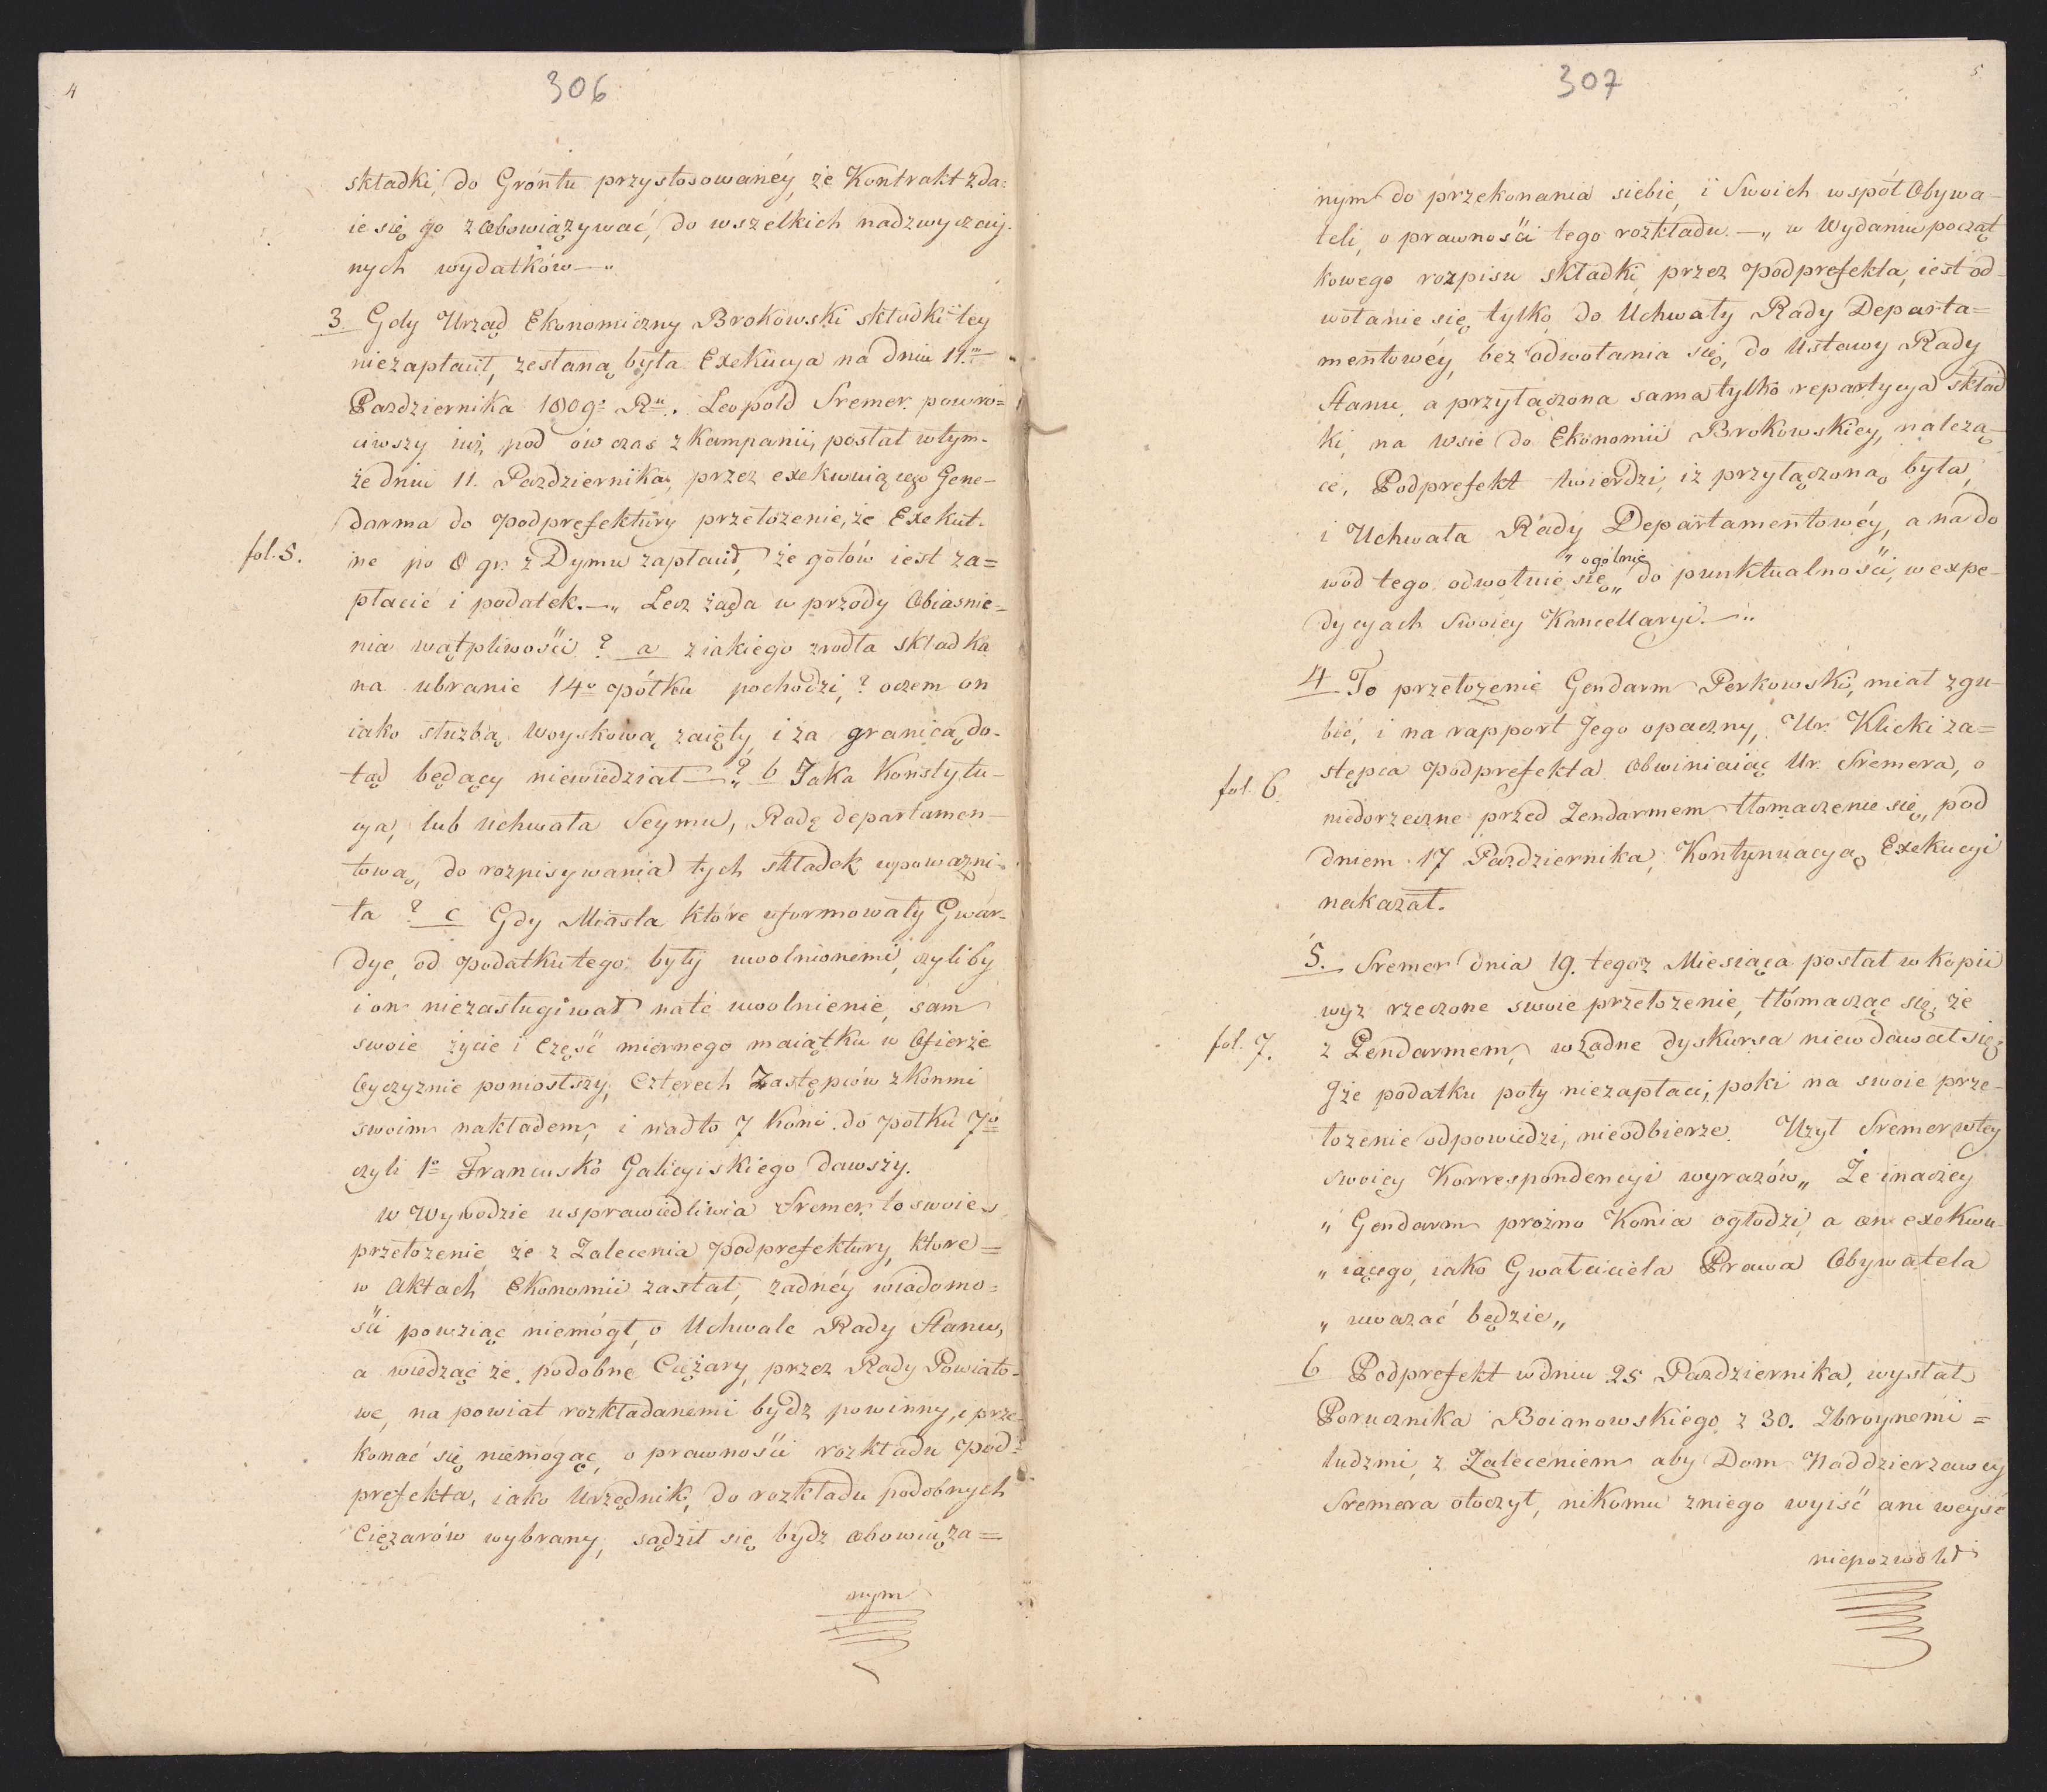 4
306
składki, do Gróntu przystosowanéy, że Kontrakt zda=
ie się go zobowiązywać, do wszelkich nadzwyczay-
nych wydatków —"
3. Gdy Urząd Ekonomiczny Brokowski składki tey
niezapłacił, zesłaną była Exekucya na dniu 11.m
Pazdziernika 1809. Ru. Leopold Sremer powró=
ciwszy iuż, pod ów czas z Kampanii, posłał w tym-
że dniu 11. Pazdziernika, przez exekwuiącego Gene-
darma do Podprefektury przełożenie, że Exekut-
fol. 5.
ne po 8 gr. z Dymu zapłacił, że gotów iest za=
płacić i podatek. —" Lecz żąda w przódy Obiasnie=
nia wątpliwości? a z iakiego zrodła składka
na ubranie 14o Półku pochodzi,? oczem on
iako służbą Woyskową zaięty, i za granicą do-
tąd będący niewiedział —"? b Jaka Konstytu-
cya, lub Uchwała Seymu, Radę departamen-
tową, do rozpisywania tych składek upowazni-
ła? c Gdy Miasta które uformowały Gwar-
dye, od podatku tego były uwolnionemi, czyliby
i on niezasługiwał na te uwolnienie, sam
swoie życie i Część miernego maiątku w Ofierze
Oyczyznie poniosłszy, Czterech Zastępców z Konmi
swoim nakładem, i nadto 7 Koni do Półku 7o
czyli 1o Francusko Galicyiskiego dawszy.
w Wywodzie usprawiedliwia Sremer to swoie
przełożenie, że z Zalecenia Podprefektury, które =
w Aktach Ekonomii zastał, żadnéy wiadomo=
ści powziąć niemógł, o Uchwale Rady Stanu,
a wiedząc że podobne Ciężary, przez Rady Powiato-
we, na powiat rozkładanemi bydz powinny, i prze-
konać się niemogąc, o prawności rozkładu Pod=
prefekta, iako Urzędnik, do rozkładu podobnych
Ciężarów wybrany, sądził się bydz obowiąza=
nym
307
5
nym do przekonania siebie, i Swoich współ Obywa-
teli, o prawności tego rozkładu. —" w Wydaniu począt
kowego rozpisu składki przez Podprefekta, iest od-
wołanie się, tylko do Uchwały Rady Departa=
mentowéy, bez odwołania się, do Ustawy Rady
Stanu, a przyłączona sama tylko repartycya skład
ki, na wsie do Ekonomii Brokowskiey, należą-
ce, Podprefekt twierdzi, iż przyłączoną była,
i Uchwała Rady Departamentowéy, a na do
" ogólnie
wód tego odwołuie się " do punktualności, w expe-
dycyach Swoiey Kancellaryi. —"
4 To przełożenie Gendarm Perkowski, miał zgu-
bić, i na rapport Jego opaczny, Ur. Klicki za=
fol. 6.
stępca Podprefekta obwiniaiąc Ur. Sremera, o
niedorzeczne przed Zendarmem tłomaczenie się, pod
dniem 17 Pazdziernika, Kontynuacyą Exekucyi
nakazał.
5. Sremer dnia 19. tegoż Miesiąca posłał w kopii
wyż rzeczone swoie przełożenie, tłómacząc się, że
fol. 7.
z Żendarmem, w żadne dyskursa niewdawał się,
że podatku póty niezapłaci, poki na swoie prze-
łożenie odpowiedzi, nieodbierze. Użył Sremer w tey
swoiey Korrespondencyi wyrazów „ Że inaczey
„ Gendarm prożno Konia ogłodzi, a on exekwu-
„ iącego, iako Gwałciciela Prawa Obywatela
„ uważać będzie „
6 Podprefekt w dniu 25 Pazdziernika, wysłał
Porucznika Boianowskiego z 30. Zbroynemi =
ludzmi, z Zaleceniem aby Dom Naddzierzawcy
Sremera otoczył, nikomu z niego wyiść ani weyść
niepozwolił